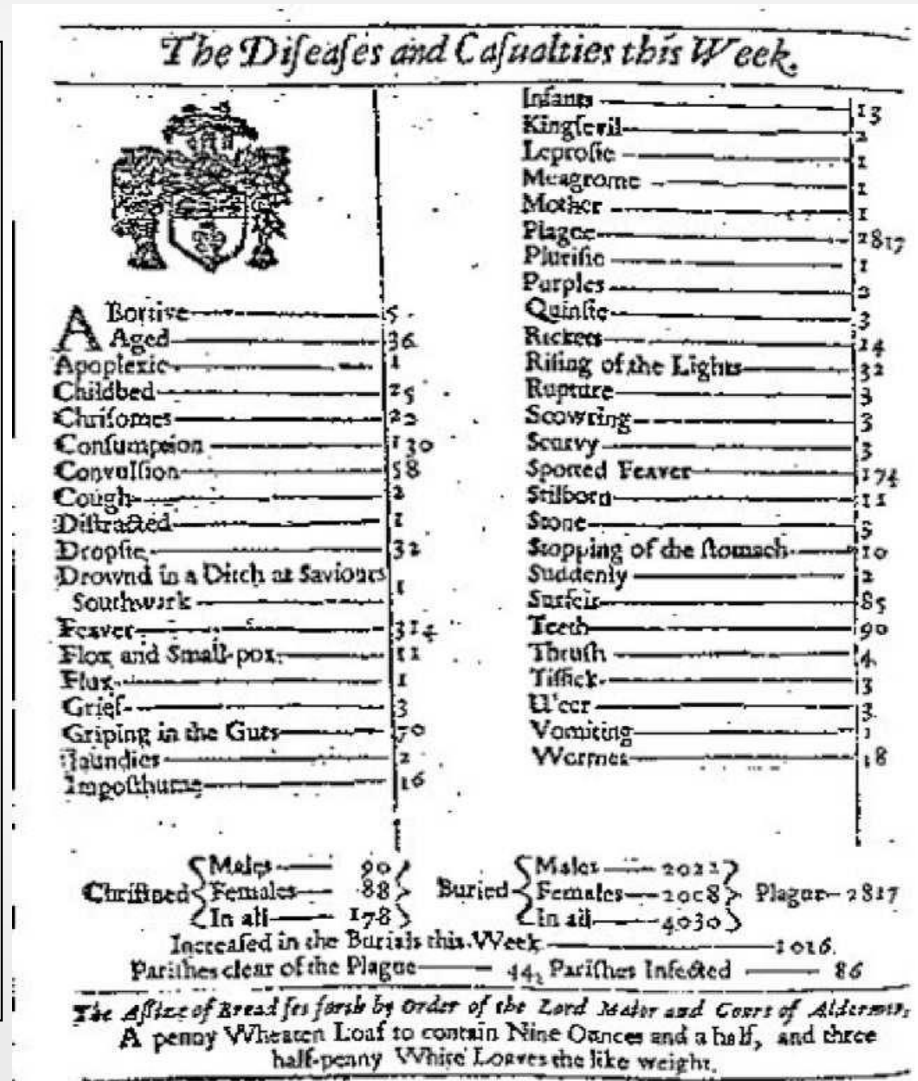 The Diſeaſes and Caſualties this Week.
ABortive 5
Aged 36
Apoplexie 1
Childbed 25
Chriſomes 22
Conſumption 130
Convulſion 58
Cough 2
Diſtracted 1
Dropſie 32
Drownd in a Ditch at Saviours
Southwark 1
Feaver 314
Flox and Small-pox 11
Flux 1
Grief 3
Griping in the Guts 70
Jaundies 2
Impoſthume 16
Infants 13
Kingſevil 2
Leproſie 1
Meagrome 1
Mother 1
Plague 2817
Pluriſie 1
Purples 2
Quinſie 3
Rickets 14
Riſing of the Lights 32
Rupture 3
Scowring 3
Scurvy 3
Spotted Feaver 174
Stilborn 11
Stone 3
Stopping of the ſtomach 10
Suddenly 2
Surfeit 85
Teeth 90
Thruſh 4
Tiſſick 3
Ulcer 3
Vomiting 1
Wormes 18
Males 90 Males 2022
Chriſtned Females 88 Buried Females 2008 Plague 2817
In all 178 In all 4030
Increaſed in the Burials this Week 1016.
Pariſhes clear of the Plague 44, Pariſhes Infected 86
The Aſſize of Bread ſet forth by Order of the Lord Maior and Court of Aldermen,
A penny Wheaten Loaf to contain Nine Ounces and a half, and three
half-penny White Loaves the like weight.